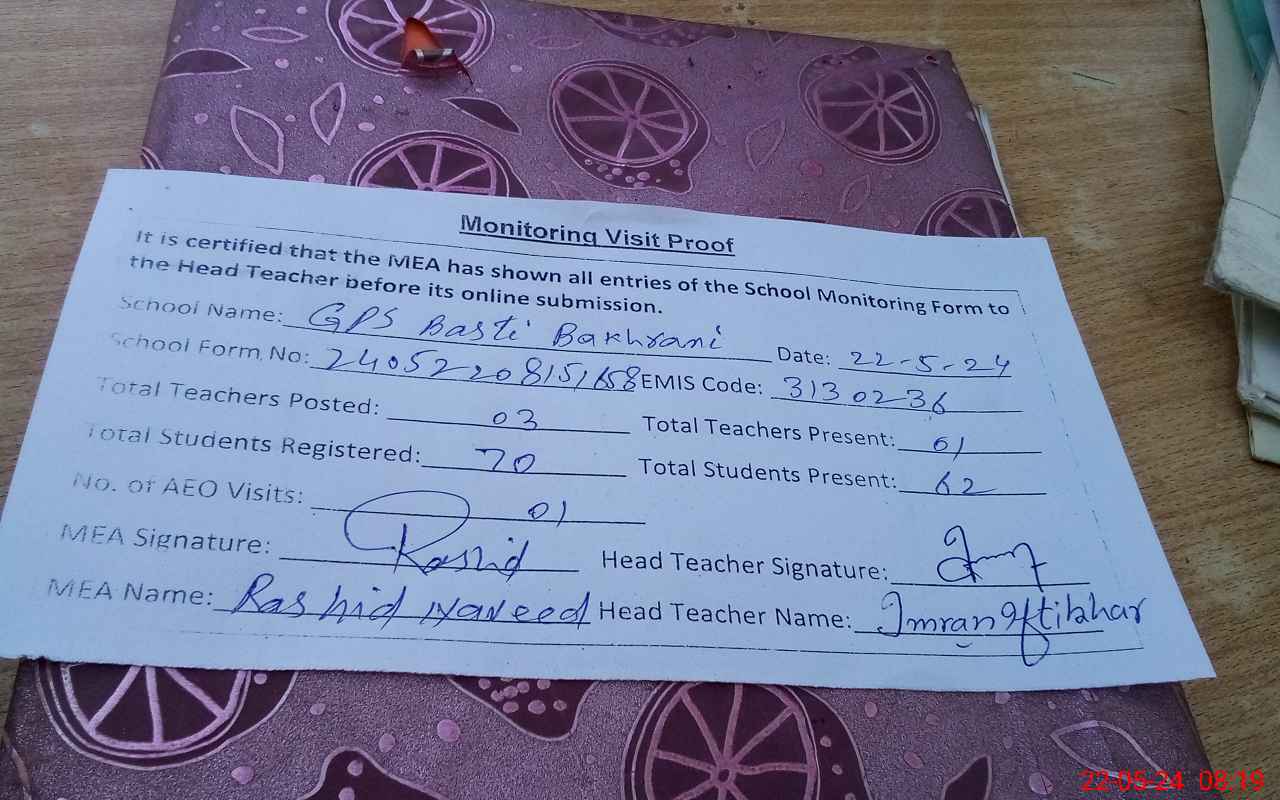 Monitoring Visit Proof
It is certified that the MEA has shown all entries of the School Monitoring Form to
the Head Teacher before its online submission.
School Name: GPS Basti Bakhrani Date: 22-5-24
School Form No: 24052208151658 EMIS Code: 3130236
Total Teachers Posted: 03 Total Teachers Present: 01
Total Students Registered: 70 Total Students Present: 62
No. of AEO Visits: 01
MEA Signature: Rashid Head Teacher Signature:
MEA Name: Rashid Naveed Head Teacher Name: Imran Iftikhar
22-05-24 08:19